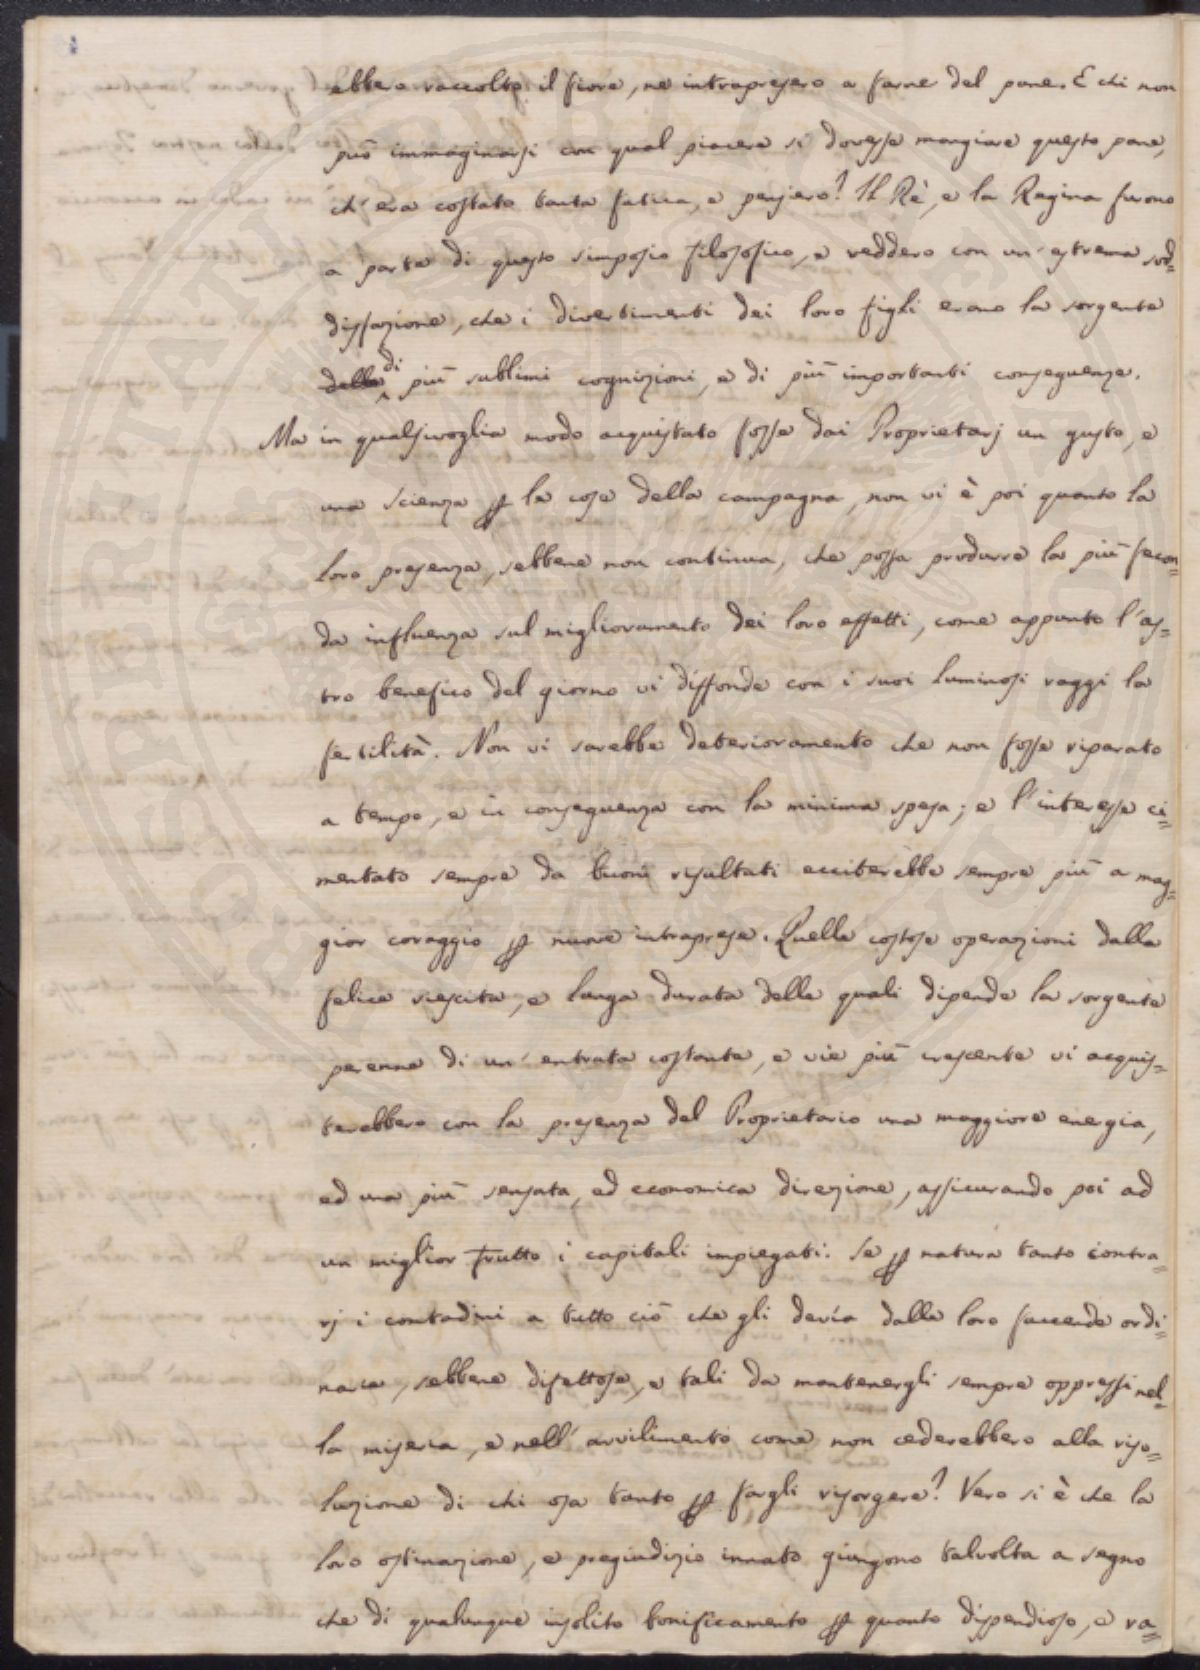 ebbero raccolto il fiore, ne intrapresero a farne del pane. E chi non
può immaginarsi con qual piacere si dovesse mangiare questo pane,
ch'era costato tanta fatica, e pensiero? Il Rè, e la Regina furono
a parte di questo simposio filosofico, e veddero con un'estrema sod=
disfazione, che i divertimenti dei loro figli erano la sorgente
delle di più sublimi cognizioni, e di più importanti conseguenze.
Ma in qualsivoglia modo acquistato fosse dai Proprietarj un gusto, e
una scienza p la cose della campagna, non vi è poi quanto la
loro presenza, sebbene non continua, che possa produrre la più fecon=
da influenza sul miglioramento dei loro effetti, come appunto l'as=
tro benefico del giorno vi diffonde con i suoi luminosi raggi la
fertilità. Non vi sarebbe deterioramento che non fosse riparato
a tempo, e in conseguenza con la minima spesa; e l'interesse ci=
mentato sempre da buoni risultati ecciterebbe sempre più a mag=
gior coraggio p nuove intraprese. Quelle costose operazioni dalla
felice riescita, e lunga durata delle quali dipende la sorgente
perenne di un'entrata costante, e vie più crescente vi acquis=
terebbero con la presenza del Proprietario una maggiore energia,
ed una più sensata, ed economica direzione, assicurando poi ad
un miglior frutto i capitali impiegati. Se p natura tanto contra=
rj i contadini a tutto ciò che gli devía dalle loro faccende ordi=
narie, sebbene difettose, e tali da mantenergli sempre oppressi nel=
la miseria, e nell'avvilimento come non cederebbero alla riso=
luzione di chi osa tanto p fargli risorgere? Vero si è che la
loro ostinazione, e pregiudizio innato giungono talvolta a segno
che di qualunque insolito bonificamento p quanto dispendioso, e va=